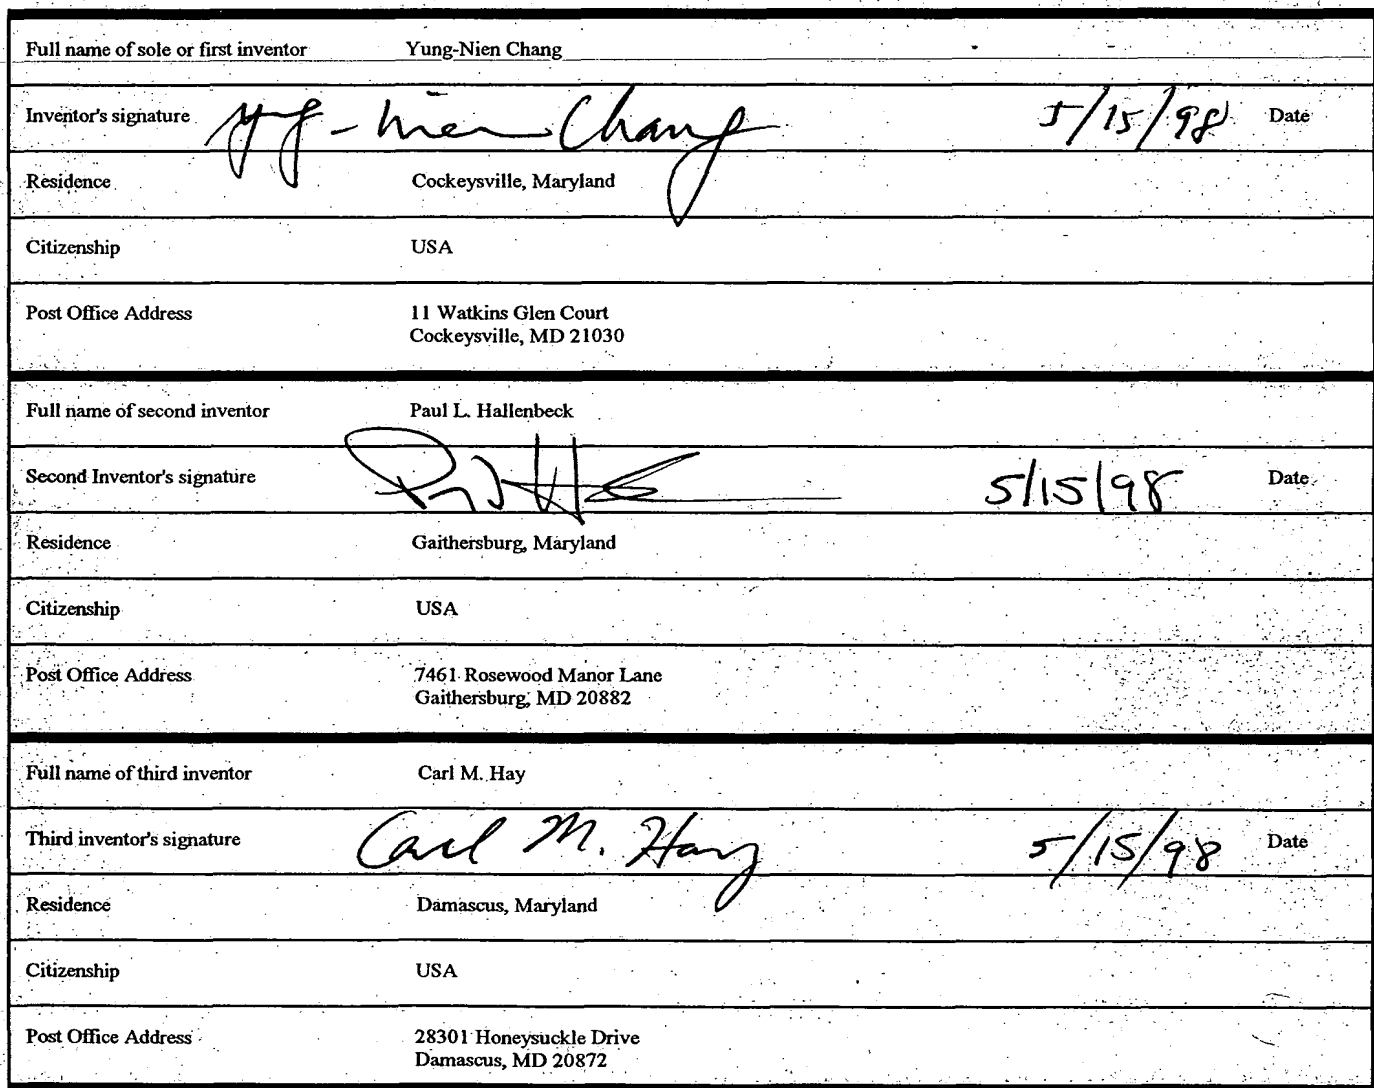 Full name of sole or first inventor Yung-Nien Chang
Inventor's signature Yung-Nien Chang 5/15/98 Date
Residence Cockeysville, Maryland
Citizenship USA
Post Office Address 11 Watkins Glen Court
Cockeysville, MD 21030
Full name of second inventor Paul L. Hallenbeck
Second Inventor's signature 5/15/98 Date
Residence Gaithersburg, Maryland
Citizenship USA
Post Office Address 7461 Rosewood Manor Lane
Gaithersburg, MD 20882
Full name of third inventor Carl M. Hay
Third inventor's signature Carl M. Hay 5/15/98 Date
Residence Damascus, Maryland
Citizenship USA
Post Office Address 28301 Honeysuckle Drive
Damascus, MD 20872